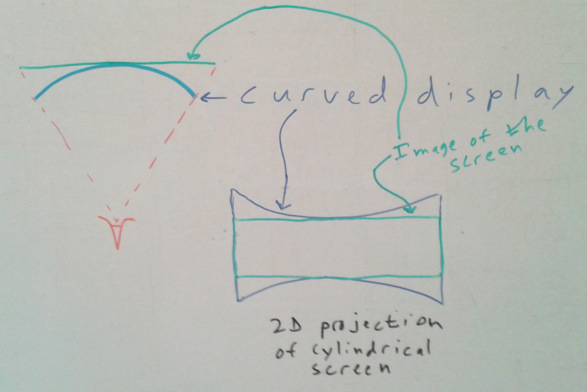 curved display
Image of the
screen
2D projection
of cylindrical
screen